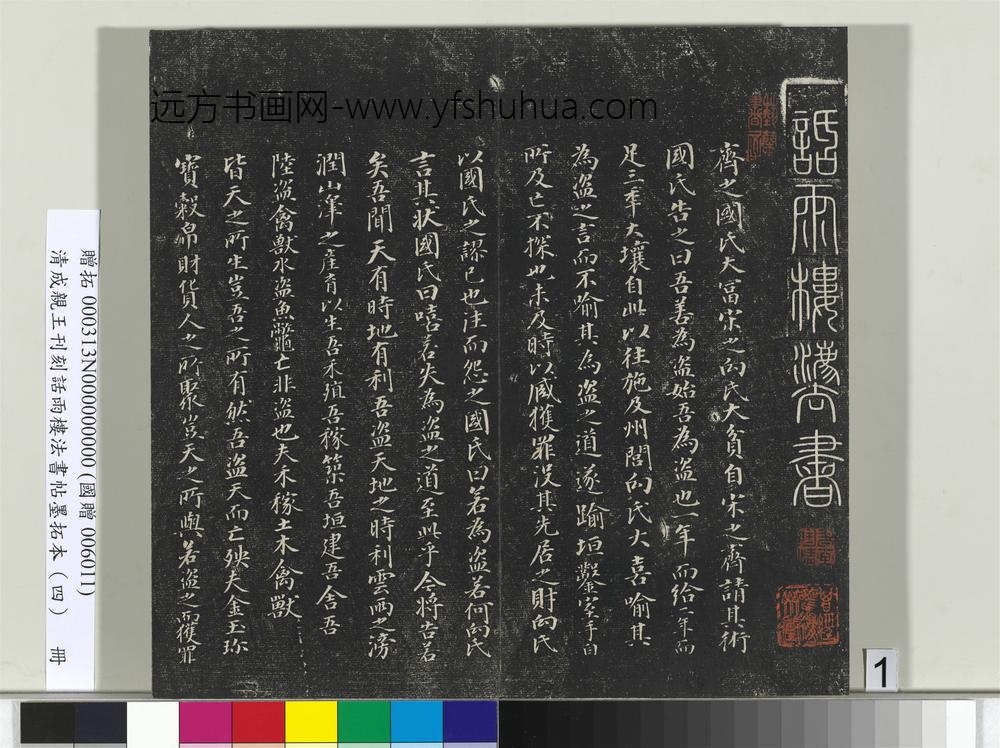 远方书画网-www.yfshuhua.com
詒晋樓法書
齊之國氏大富宋之向氏大貧自宋之齊請其術
國氏告之曰吾善為盗始吾為盗也一年而給二年而
足三年大壤自此以往施及州閭向氏大喜喻其
為盗之言而不喻其為盗之道遂踰垣鑿室手目
所及亡不探也未及時以臧獲罪没其先居之財向氏
以國氏之謬已也往而怨之國氏曰若為盗若何向氏
言其狀國氏曰嘻若失為盗之道至此乎今將告若
矣吾聞天有時地有利吾盗天地之時利雲雨之滂
潤山澤之産育以生吾禾殖吾稼築吾垣建吾舍吾
陸盗禽獸水盗魚鼈亡非盗也夫禾稼土木禽獸
皆天之所生豈吾之所有然吾盗天而亡殃夫金玉珎
寶穀帛財貨人之所聚豈天之所與若盗之而獲罪
贈拓 000313N000000000 (國贈 006011)
清成親王刊刻話雨樓法書帖墨拓本（四） 冊
1